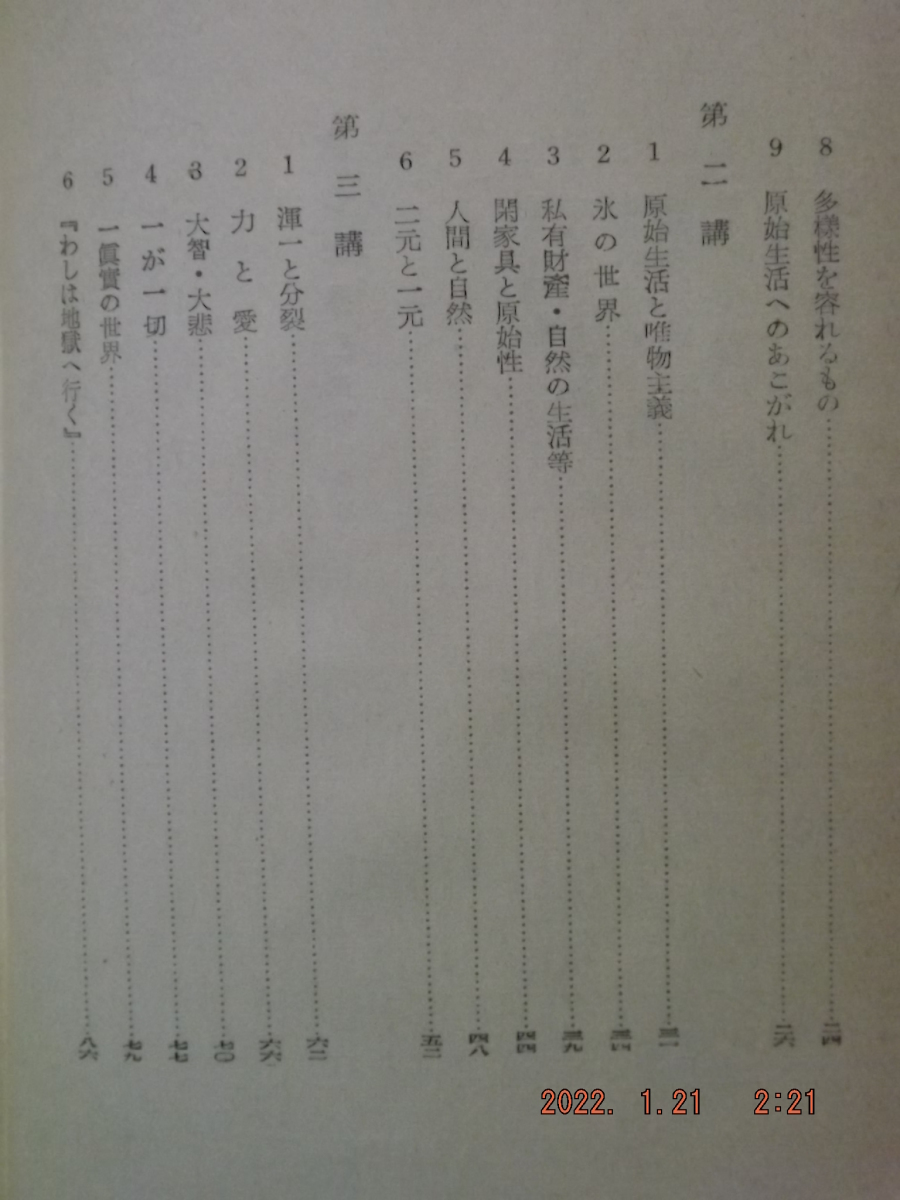 8 多樣性を容れるもの……二四
9 原始生活へのあこがれ……二六
第二講
1 原始生活と唯物主義……三一
2 氷の世界……三四
3 私有財產・自然の生活等……三九
4 閑家具と原始性……四四
5 人間と自然……四八
6 二元と一元……五二
第三講
1 渾一と分裂……六二
2 力と愛……六六
3 大智・大悲……七〇
4 一が一切……七七
5 一眞實の世界……七九
6 『わしは地獄へ行く』……八六
2022. 1.21 2:21